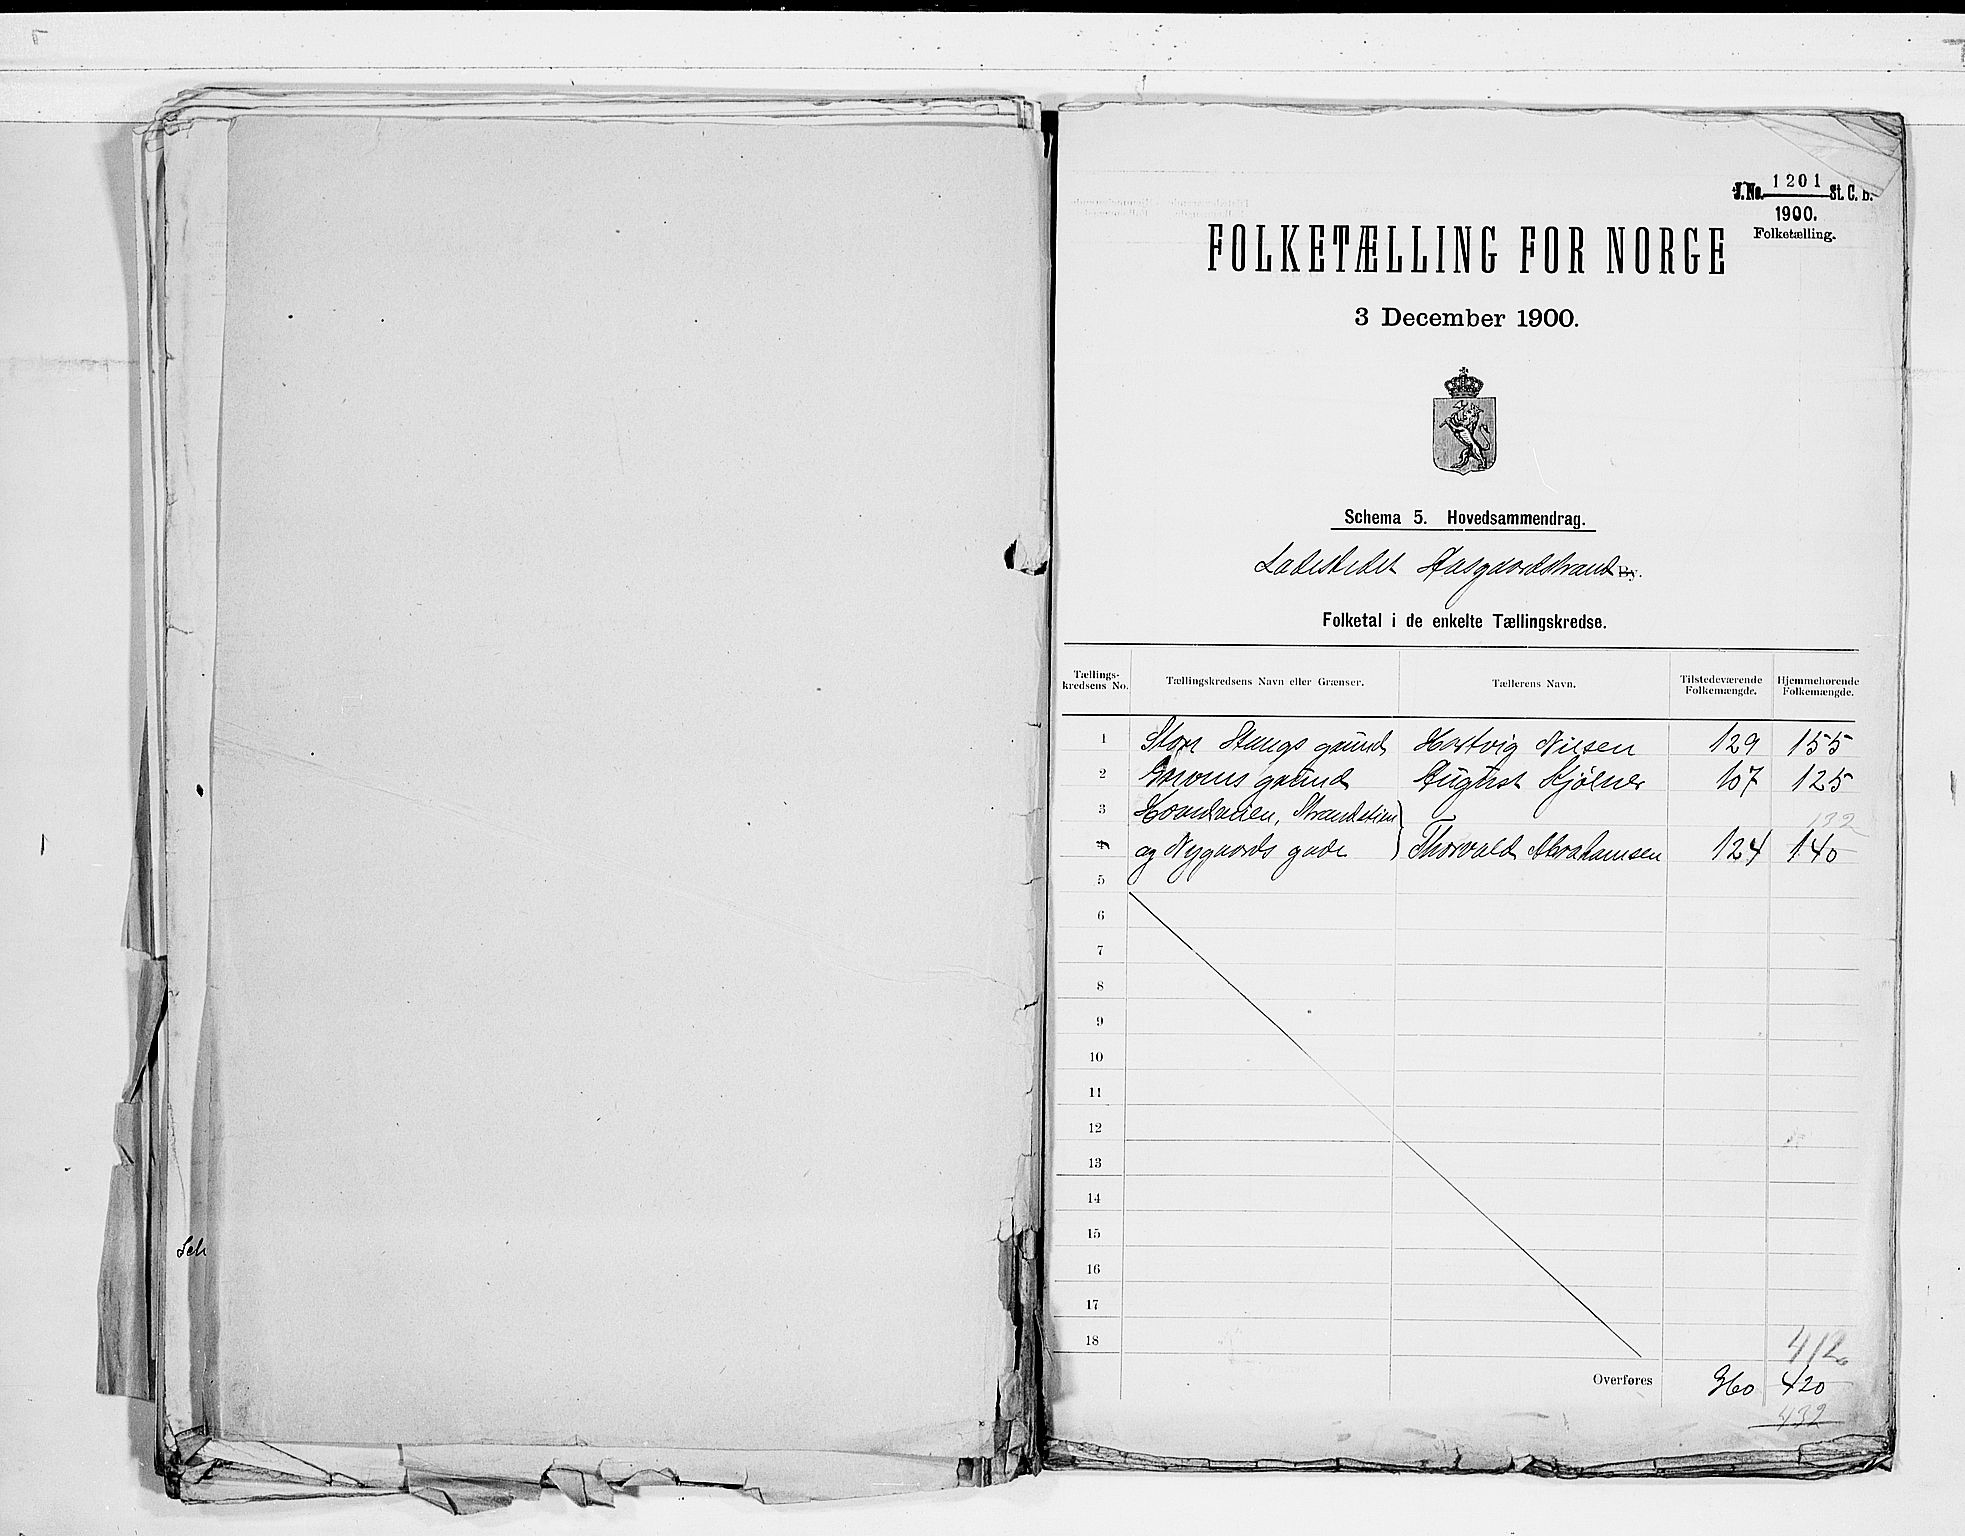 J. No. 1201 St. C. B.
1900.
Folketælling.
FOLKETÆLLING FOR NORGE
3 December 1900.
Schema 5. Hovedsammendrag.
Ladestedet Aasgaardstrand By.
Folketal i de enkelte Tællingskredse.
Tællings-kredsens No. Tællingskredsens Navn eller Grænser. Tællerens Navn. Tilstedeværende Folkemængde. Hjemmehørende Folkemængde.
1 Stangs grund Hartvig Nilsen 129 155
2 grund August Kjølner 107 125
3 132
4 og Nygaards gade Thorvald Abrahamsen 124 140
5
6
7
8
9
10
11
12
13
14
15
16
17
18
412
Overføres 360 420
432
Sch